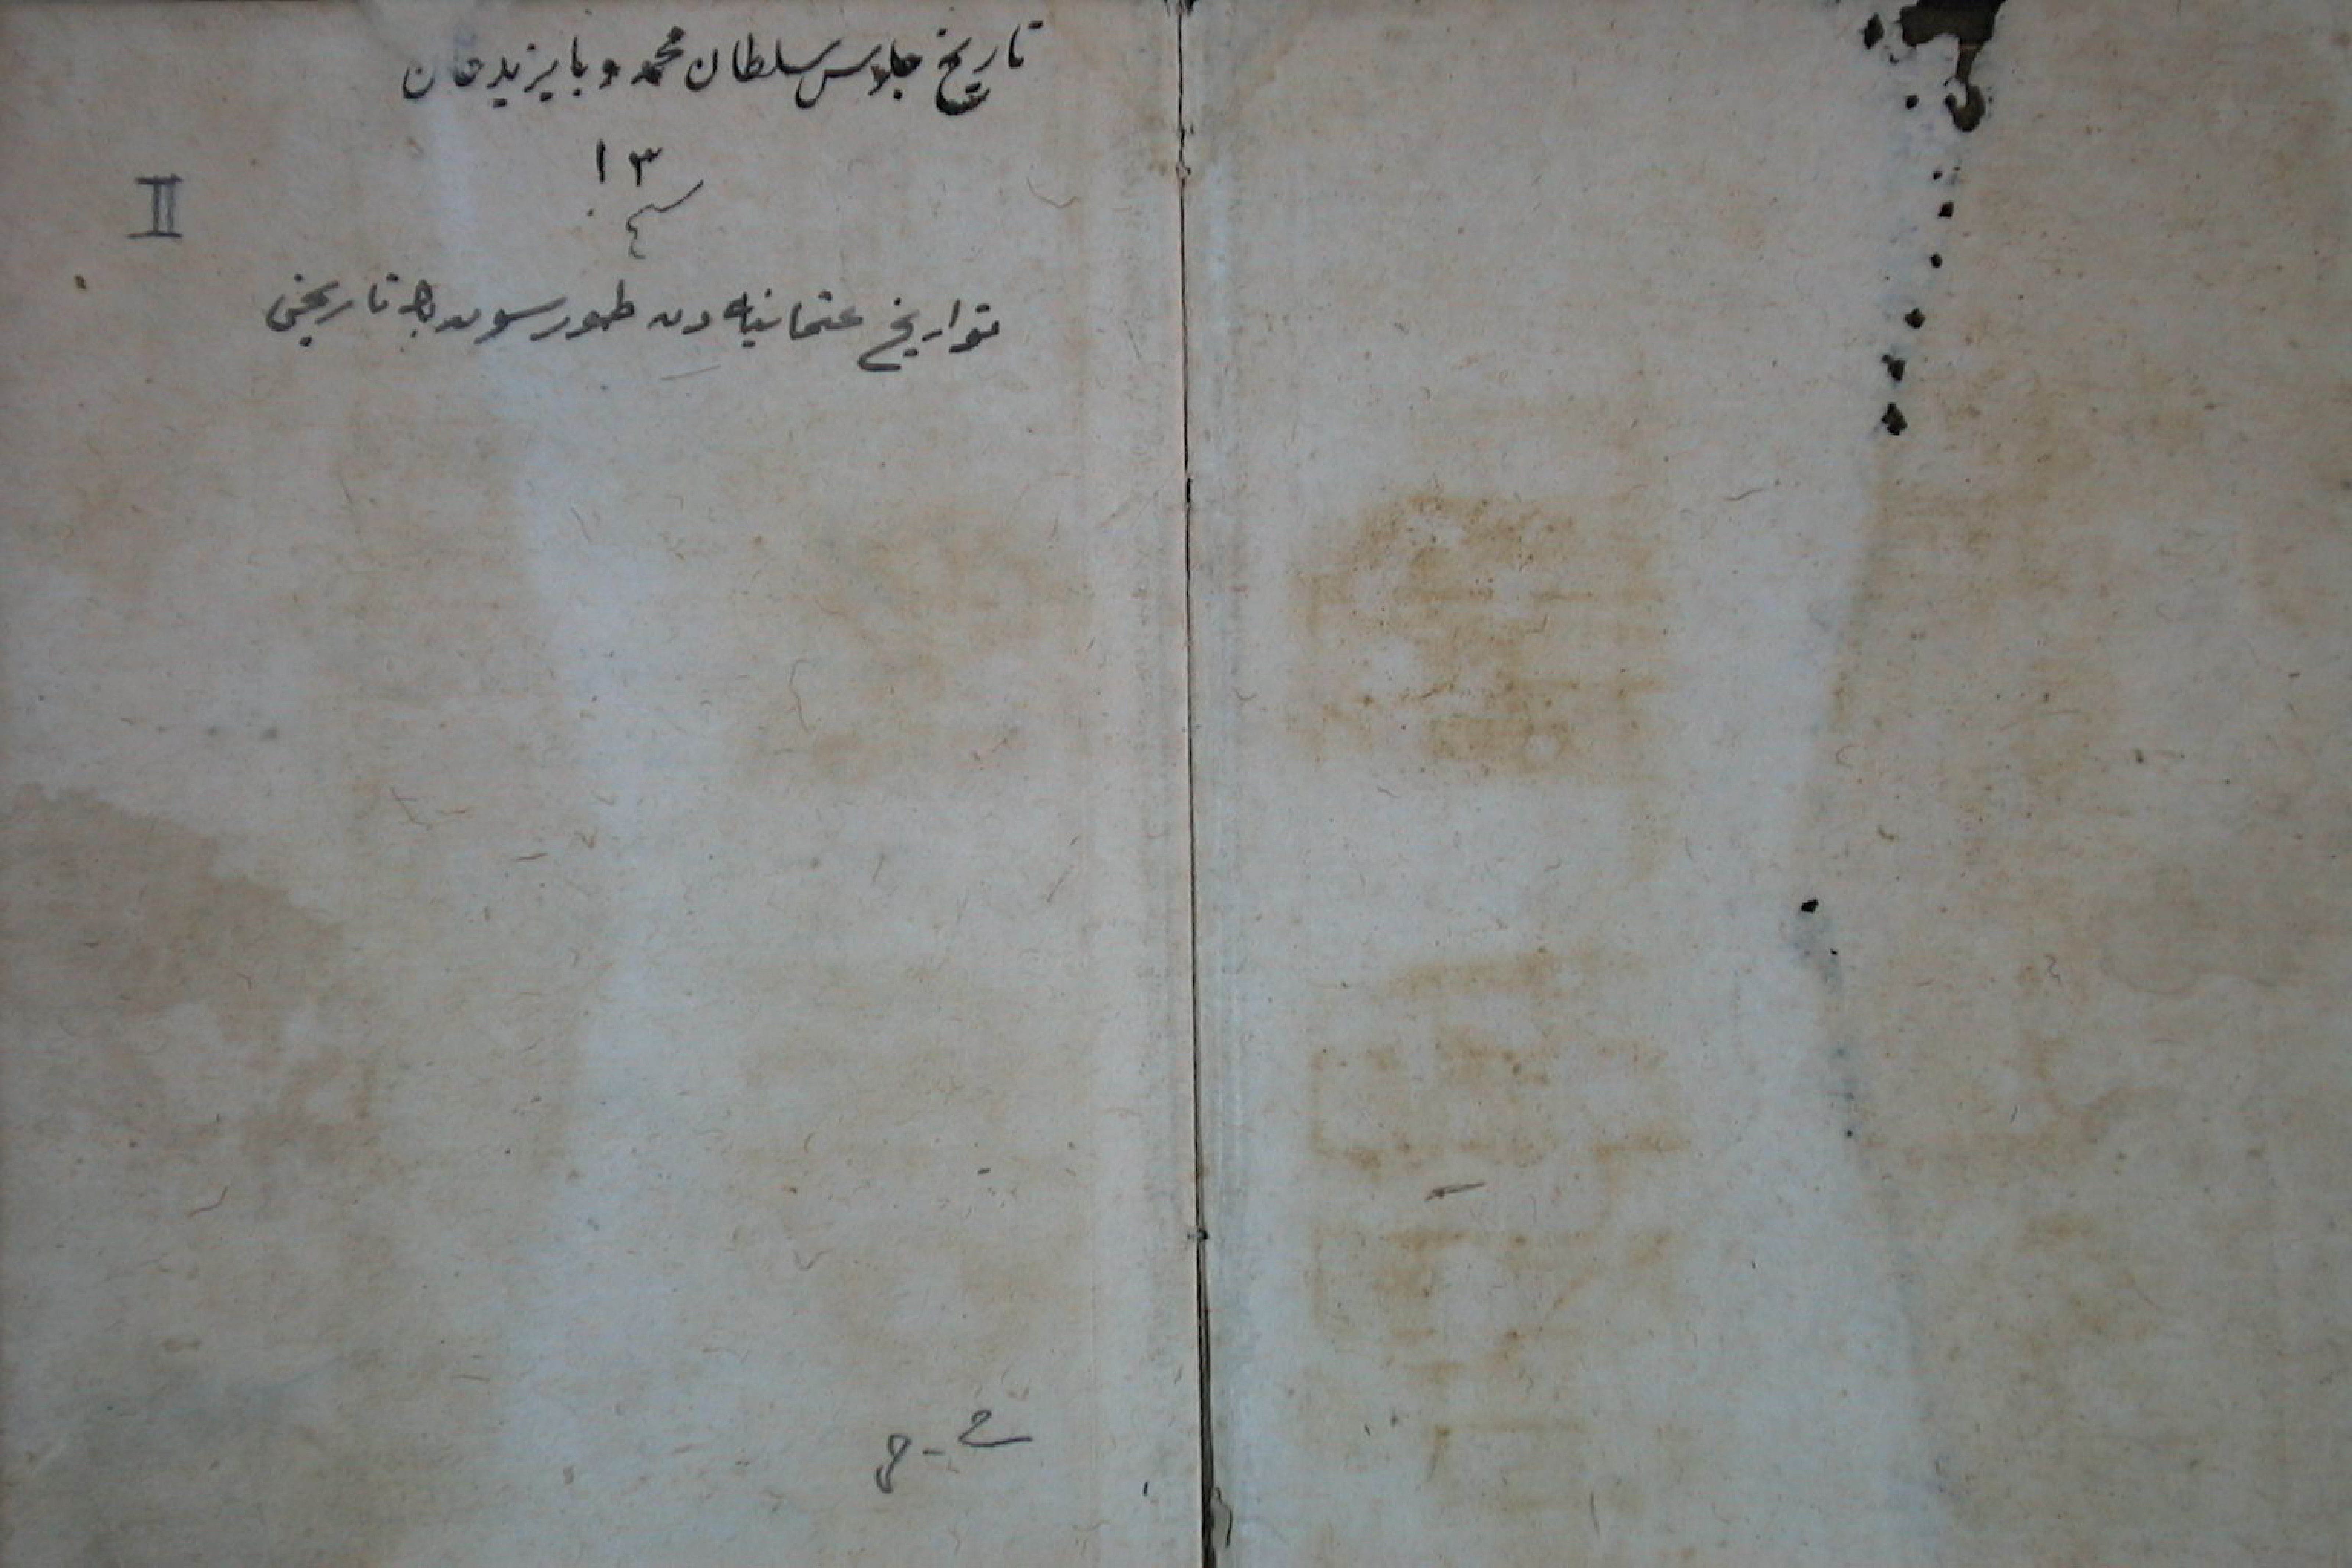 تاريخ جلوس سلطان محمد و بايزيد خان
١٣
II
تواريخ عثمانيه دن طورسون بك تاريخى